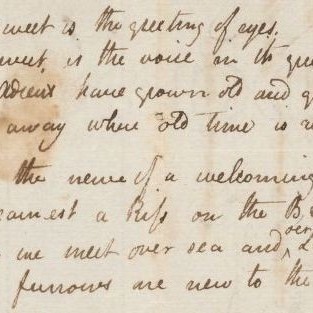 weet is the greeting of eyes,
weet is the voice in its gree
adieux have grown old and g
away where old time is r
the nerve of a welcoming
earnest a Kiss on the B
we meet over sea and over
furrows are new to the